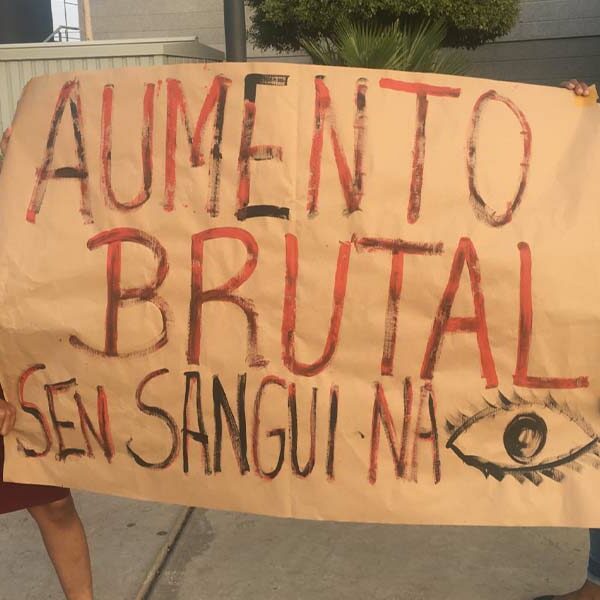 AUMENTO
BRUTAL
SEN SANGUI·NA